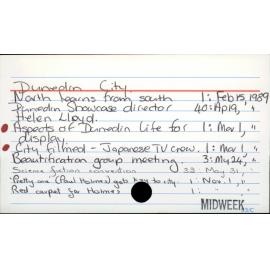 Dunedin City
North learns from south 1: Feb 15, 1989
Dunedin Showcase director 40: Ap 19, "
Helen Lloyd.
Aspects of Dunedin Life for 1: Mar 1, "
display
City filmed - Japanese TV crew. 1: Mar 1, "
Beautification group meeting. 3: My 24, "
Science fiction convention 33: May 31, "
Pretty one (Paul Holmes) gets key to city. 1: Nov 1, "
Red carpet for Holmes 1: "
MIDWEEK